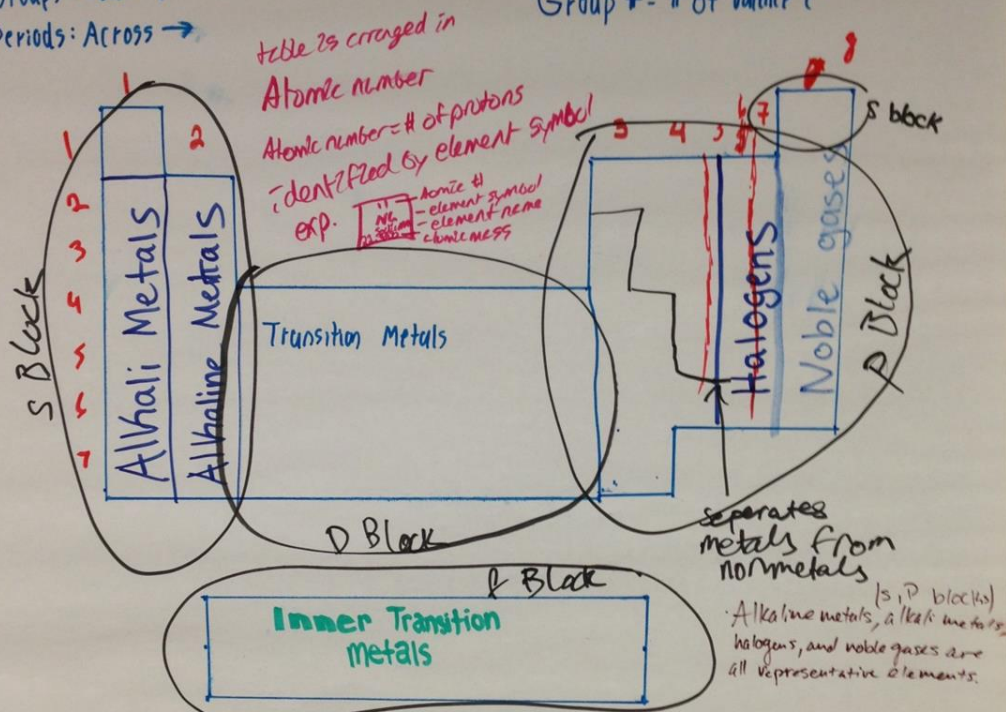 Periods: Across →
table is arranged in
Atomic number
Atomic number = # of protons
identified by element symbol
exp.
Atomic #
element symbol
element name
atomic mass
1
2
3
4
5
6
7
8
S block
1
2
3
4
5
6
7
S Block
Alkali Metals
Alkaline Metals
Transition Metals
Halogens
Noble gases
P Block
D Block
seperates
metals from
nonmetals
f Block
Inner Transition
metals
(s, P blocks)
Alkaline metals, alkali metals,
halogens, and noble gases are
all representative elements.